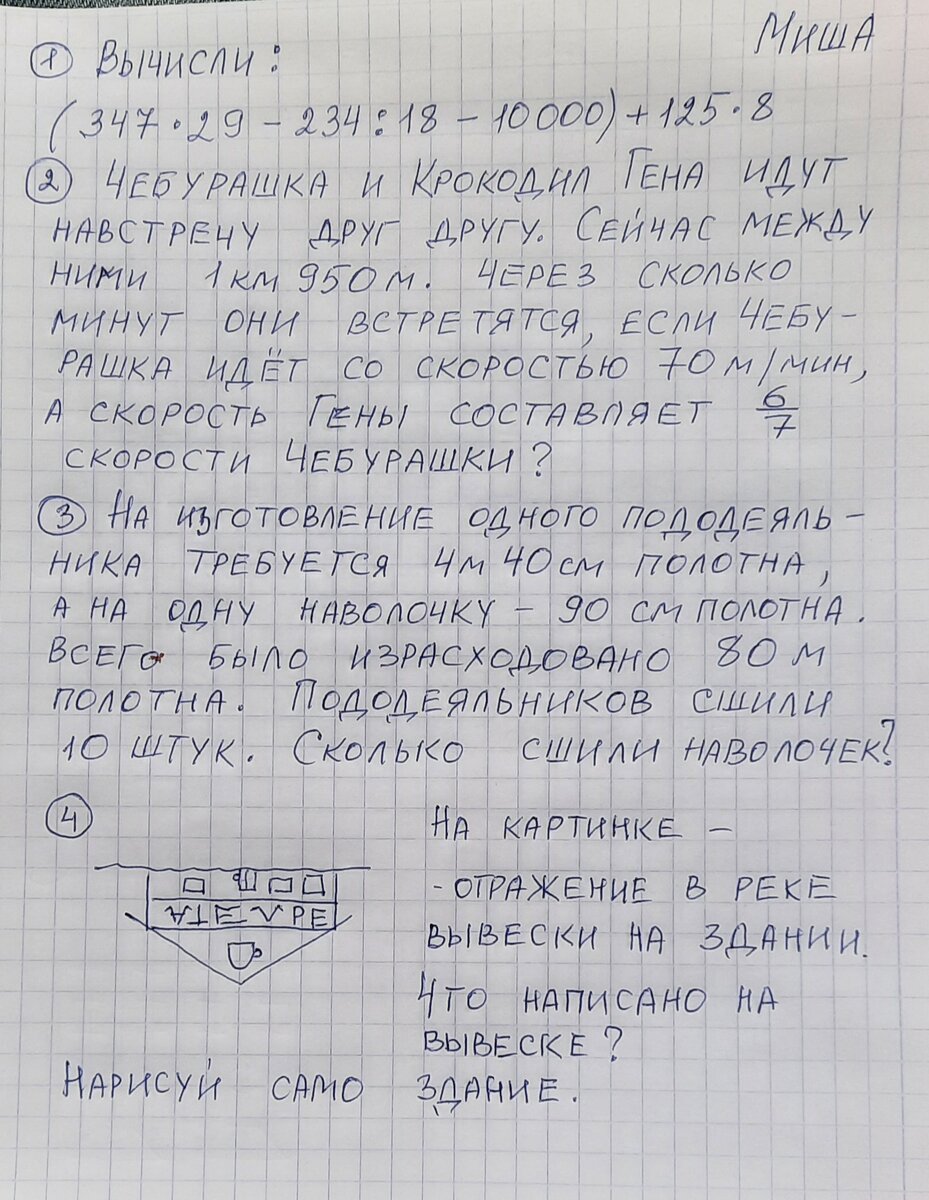 Миша
① Вычисли:
(347·29-234:18-10000)+125·8
② Чебурашка и Крокодил Гена идут
навстречу друг другу. Сейчас между
ними 1 км 950 м. Через сколько
минут они встретятся, если Чебу-
рашка идёт со скоростью 70 м/мин,
а скорость Гены составляет 6/7
скорости Чебурашки?
③ На изготовление одного пододеяль-
ника требуется 4 м 40 см полотна,
а на одну наволочку - 90 см полотна.
Всего было израсходовано 80 м
полотна. Пододеяльников сшили
10 штук. Сколько сшили наволочек?
④ На картинке -
- отражение в реке
вывески на здании.
Что написано на
вывеске?
Нарисуй само здание.